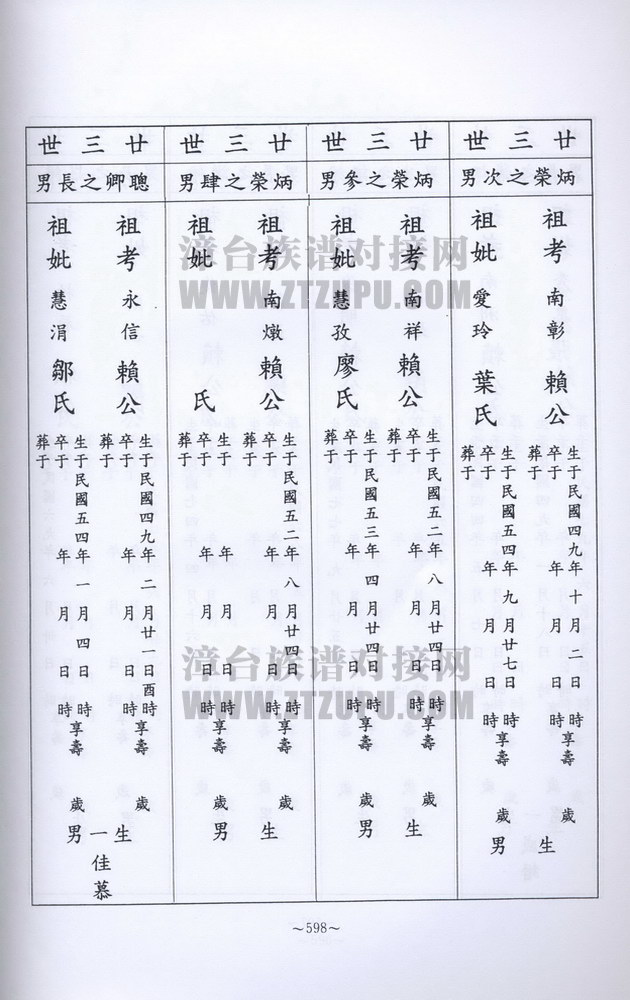 廿三世
炳榮之次男
祖考南彰賴公
生于民國四九年十月二日時享壽歲
卒于年月日時
葬于
祖妣愛玲葉氏
生于民國五四年九月廿七日時享壽
卒于年月日時
葬于
生男
廿三世
炳榮之參男
祖考南祥賴公
生于民國五二年八月廿四日時享壽歲
卒于年月日時
葬于
祖妣慧孜廖氏
生于民國五三年四月廿四日時享壽歲
卒于年月日時
葬于
生男
廿三世
炳榮之肆男
祖考南燉賴公
生于民國五二年八月廿四日時享壽歲
卒于年月日時
葬于
祖妣氏
生于年月日時享壽歲
卒于年月日時
葬于
生男
廿三世
聰卿之長男
祖考永信賴公
生于民國四九年二月廿一日酉時享壽歲
卒于年月日時
葬于
祖妣慧涓鄒氏
生于民國五四年一月四日時享壽歲
卒于年月日時
葬于
生一男
佳慕
～598～
漳台族谱对接网
WWW.ZTZUPU.COM
漳台族谱对接网
WWW.ZTZUPU.COM